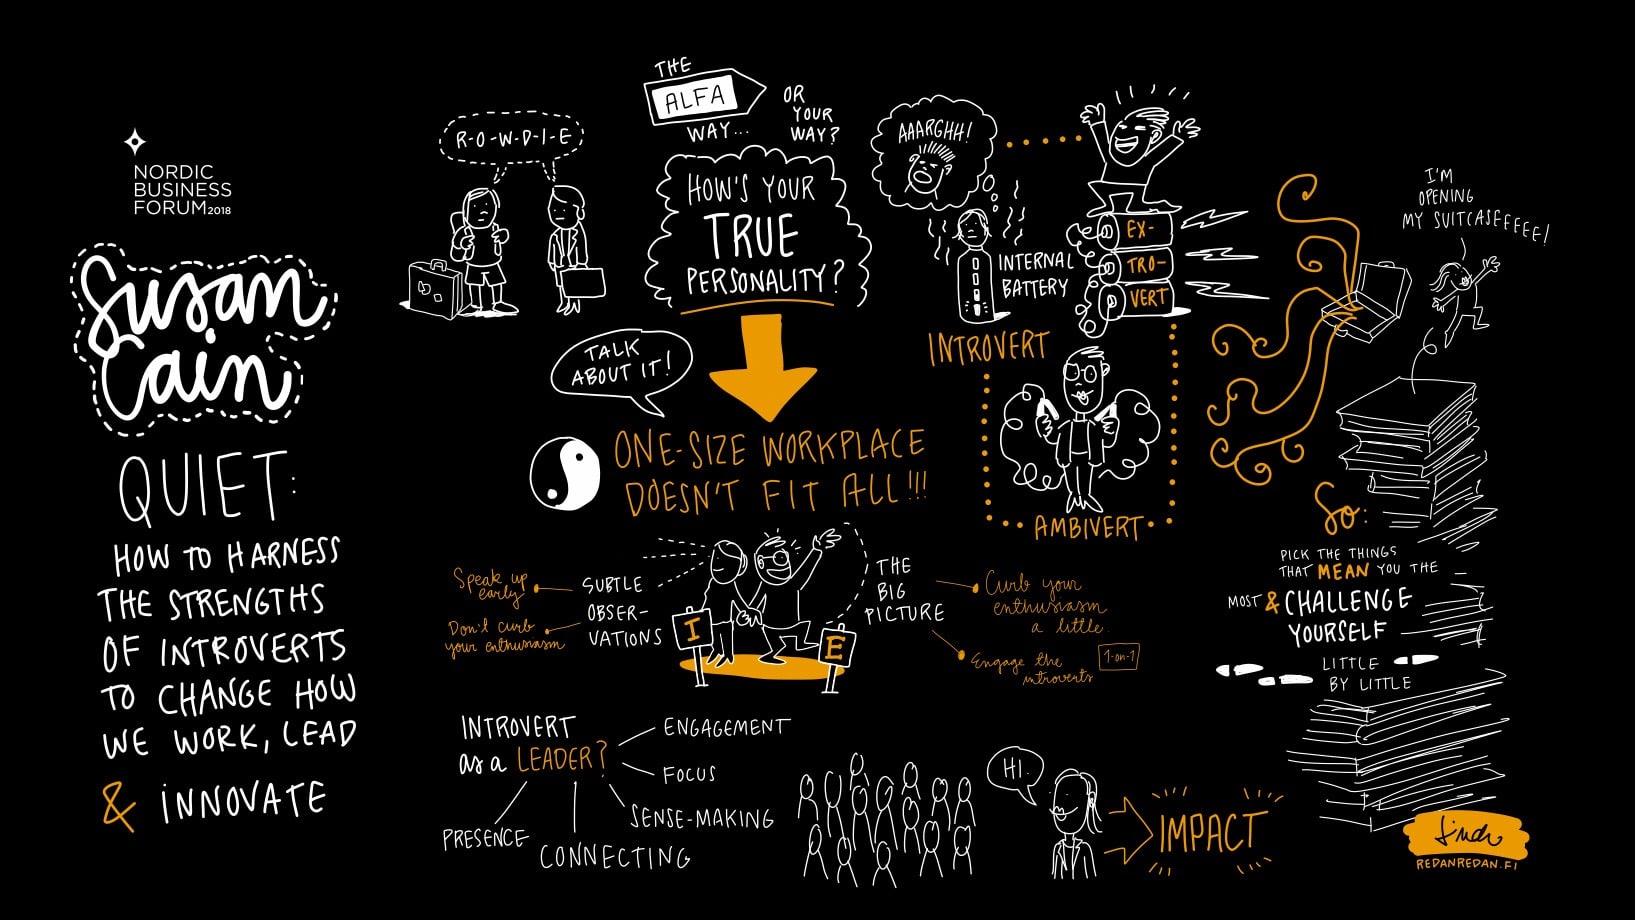 NORDIC
BUSINESS
FORUM2018
Susan
Cain
QUIET:
HOW TO HARNESS
THE STRENGTHS
OF INTROVERTS
TO CHANGE HOW
WE WORK, LEAD
& INNOVATE
R-O-W-D-I-E
THE
ALFA
WAY...
OR
YOUR
WAY?
HOW'S YOUR
TRUE
PERSONALITY?
TALK
ABOUT IT!
ONE-SIZE WORKPLACE
DOESN'T FIT ALL!!!
AAARGHH!
INTERNAL
BATTERY
INTROVERT
EX-
TRO-
VERT
AMBIVERT
I'M
OPENING
MY SUITCASEEEE!
Speak up
early
Don't curb
your enthusiasm
SUBTLE
OBSER-
VATIONS
I
E
THE
BIG
PICTURE
Curb your
enthusiasm
a little.
Engage the
introverts
1-on-1
INTROVERT
as a LEADER?
ENGAGEMENT
FOCUS
SENSE-MAKING
CONNECTING
PRESENCE
HI.
IMPACT
So:
PICK THE THINGS
THAT MEAN YOU THE
MOST & CHALLENGE
YOURSELF
LITTLE
BY LITTLE
REDANREDAN.FI